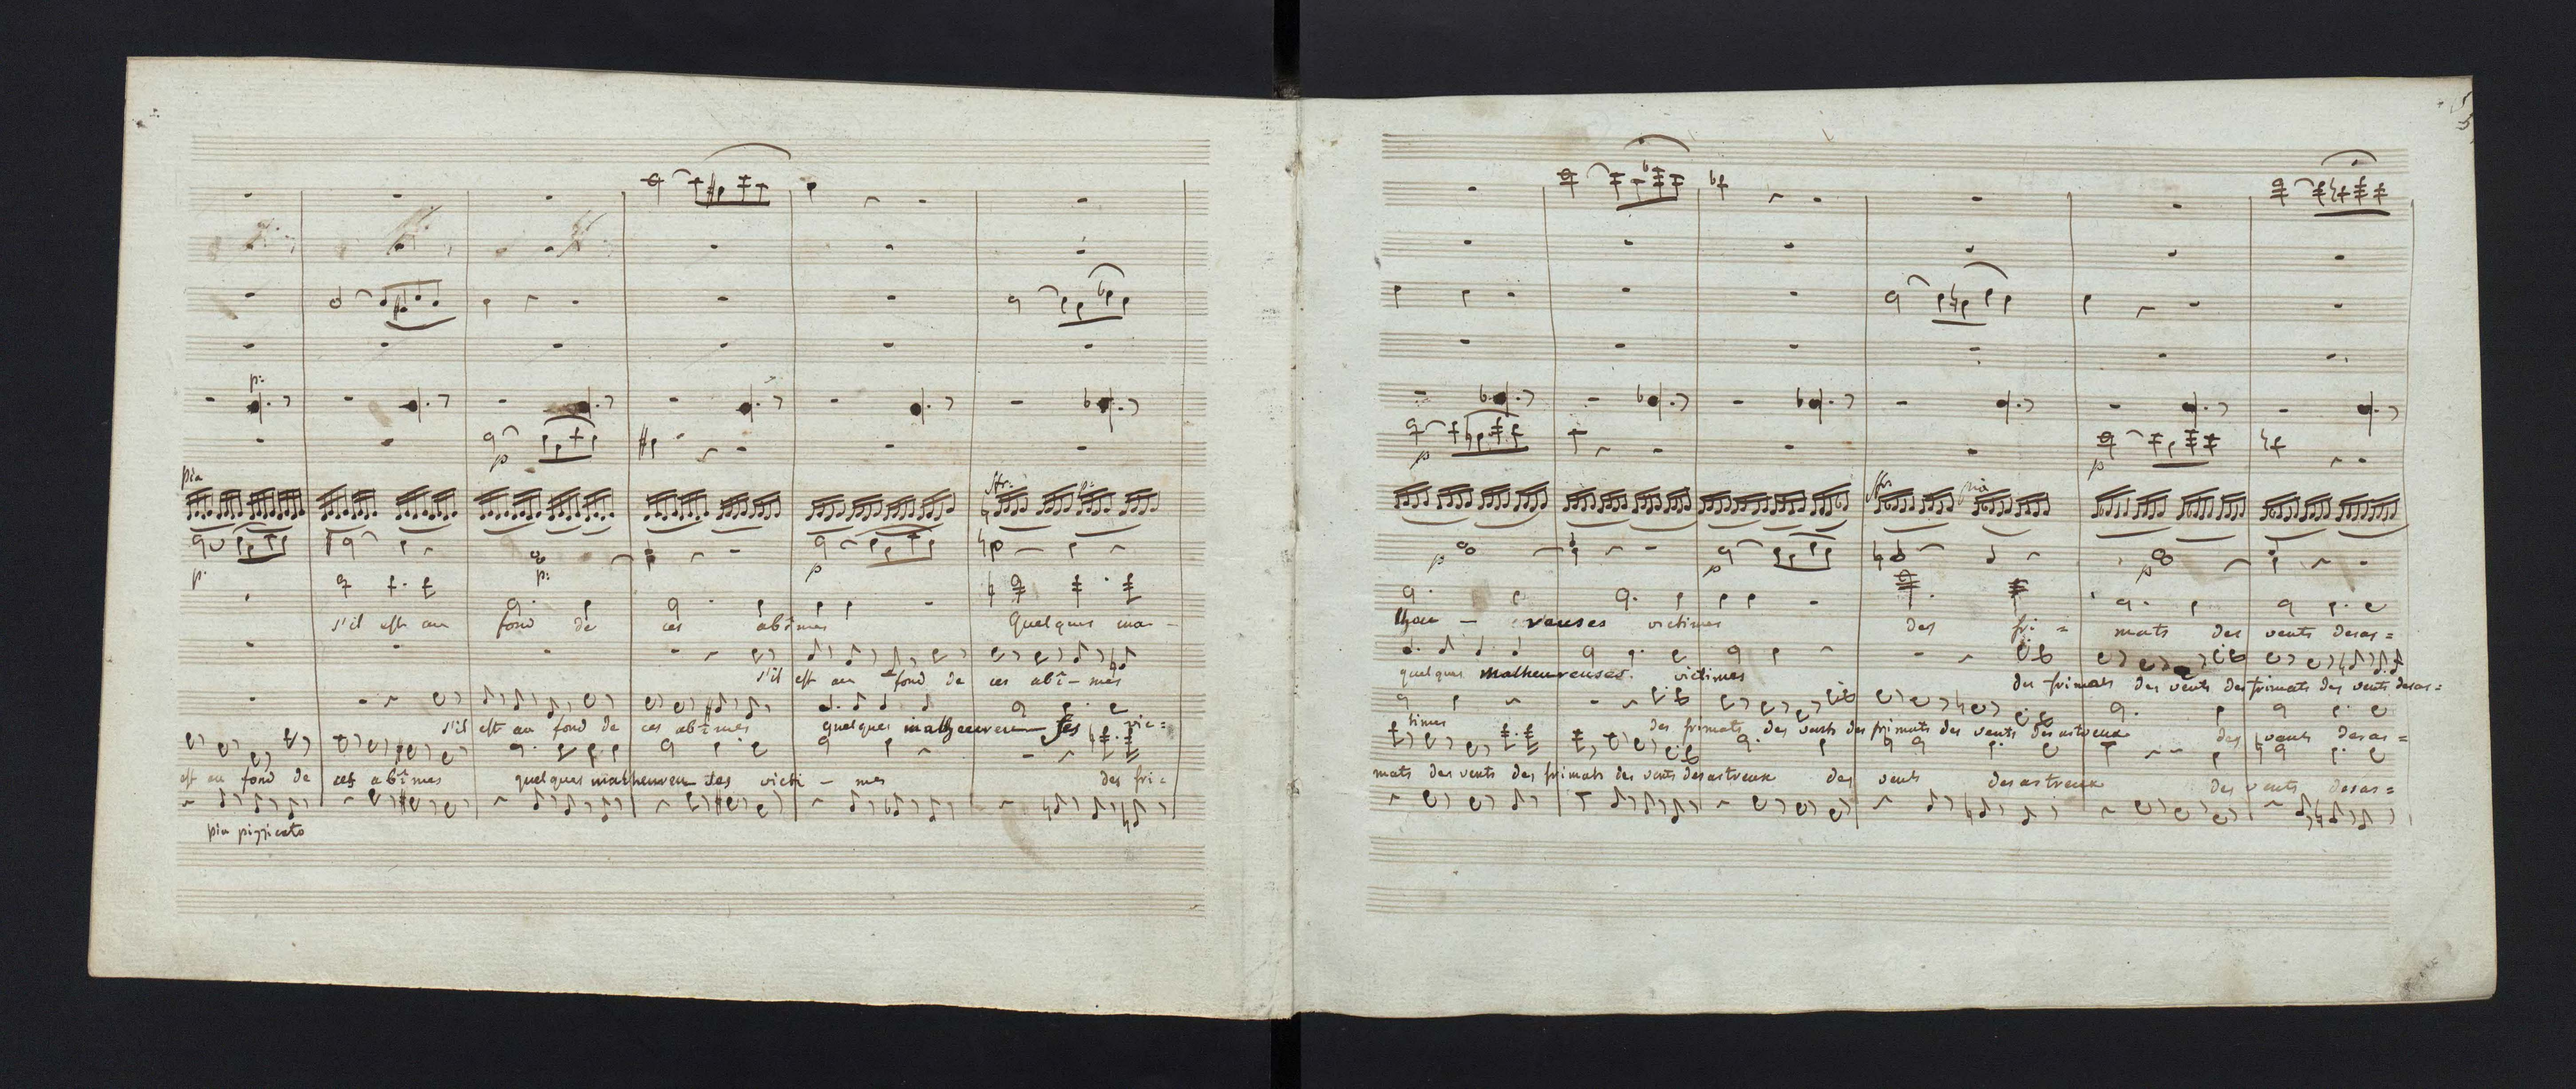 p:
p
pia
sfr. p:
p. p: p
s'il est au fond de ces abîmes Quelques ma -
s'il est au fond de ces abî - mes
s'il est au fond de ces abîmes quelques malheureu - ses vic =
est au fond de ces abîmes quelques malheureu - ses victi - mes des fri =
pia pizzicato
5
p p
sfr. pia
p p p
lheu - reuses victimes des fri = mats des vents desas =
quelques malheureuses victimes des frimats des vents des frimats des vents desas =
times des frimats des vents des frimats des vents desastreux des vents desas =
mats des vents des frimats des vents desastreux des vents desastreux des vents desas =